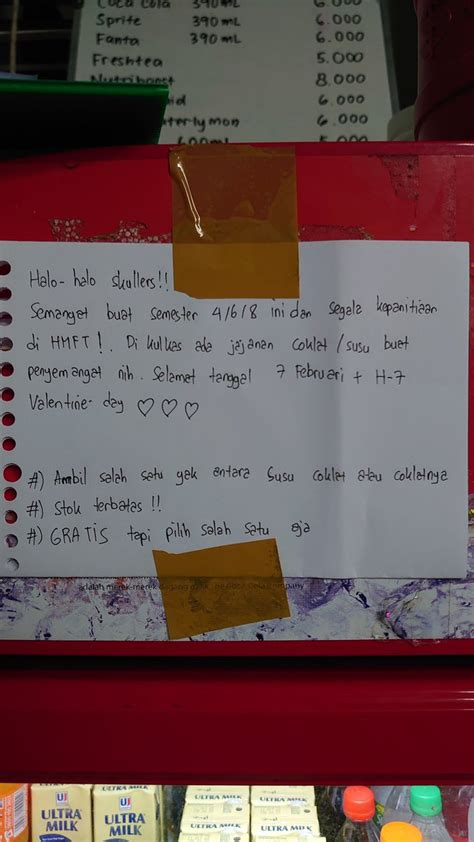 Coca Cola 390 mL 6.000
Sprite 390 mL 6.000
Fanta 390 mL 6.000
Freshtea 5.000
Nutriboost 8.000
6.000
6.000
600 mL 5.000
Halo-halo skullers!!
Semangat buat semester 4/6/8 ini dan segala kepanitiaan
di HMFT!. Di kulkas ada jajanan coklat/susu buat
penyemangat nih. Selamat tanggal 7 Februari + H-7
Valentine-day ♡♡♡
#) Ambil salah satu yak antara Susu coklat atau coklatnya
#) Stok terbatas !!
#) GRATIS tapi pilih salah satu aja
adalah merek-merek dagang
Company
ULTRA MILK
ULTRA MILK
ULTRA MILK
ULTRA MILK